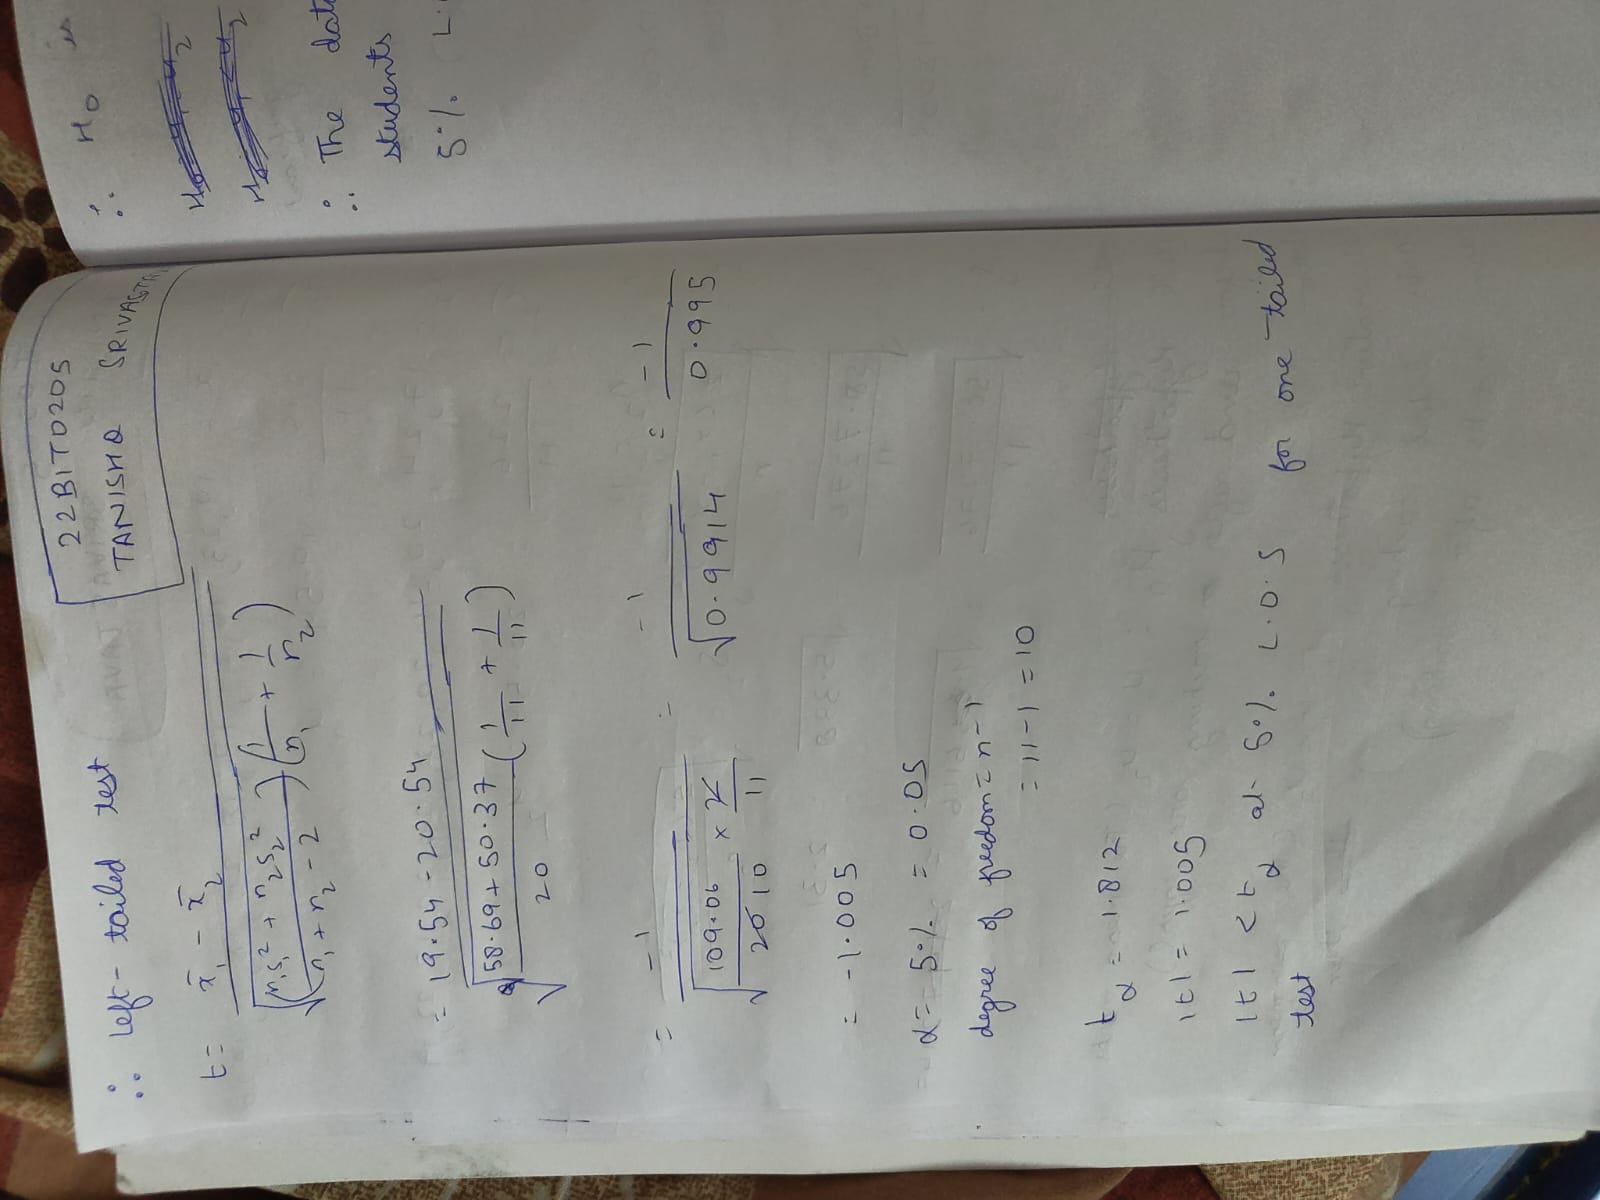 22BIT0205
TANISHQ SRIVASTA
∴ Left-tailed test
t = x̄₁ - x̄₂ / √((n₁s₁² + n₂s₂² / n₁ + n₂ - 2) (1/n₁ + 1/n₂))
= 19.54 - 20.54 / √(58.69 + 50.37 / 20 (1/11 + 1/11))
= -1 / √(109.06 / 20 10 × 2/11) = -1 / √0.9914 = -1 / 0.995
= -1.005
α = 5% = 0.05
degree of freedom = n-1
= 11-1 = 10
tα = 1.812
|t| = 1.005
|t| < tα at 5% L.O.S for one tailed
test
∴ H₀ is
∴ The data
students
5% L.